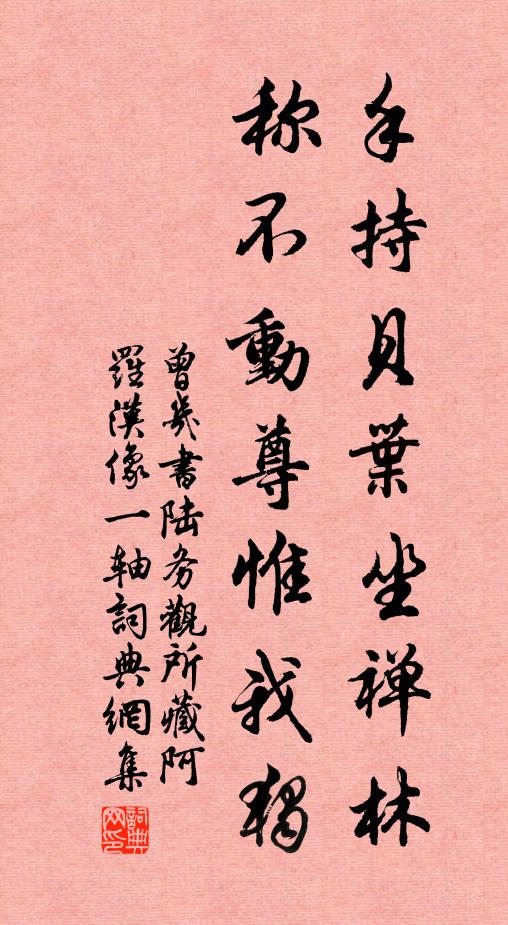 手持貝葉坐禅林
称不動尊惟我獨
曾幾書陸务觀所藏阿
羅漢像一軸詞典網集
詞典网印